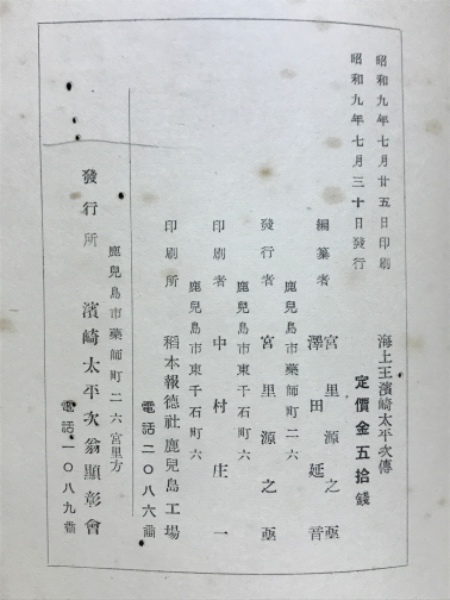 昭和九年七月廿五日印刷
昭和九年七月三十日發行
海上王濱崎太平次傳
定價金五拾錢
編纂者 宮里源之丞
澤田延音
鹿兒島市藥師町二六
發行者 宮里源之丞
鹿兒島市東千石町六
印刷者 中村庄一
鹿兒島市東千石町六
印刷所 稻本報德社鹿兒島工場
電話二〇八六番
鹿兒島市藥師町二六宮里方
發行所 濱崎太平次翁顯彰會
電話一〇八九番